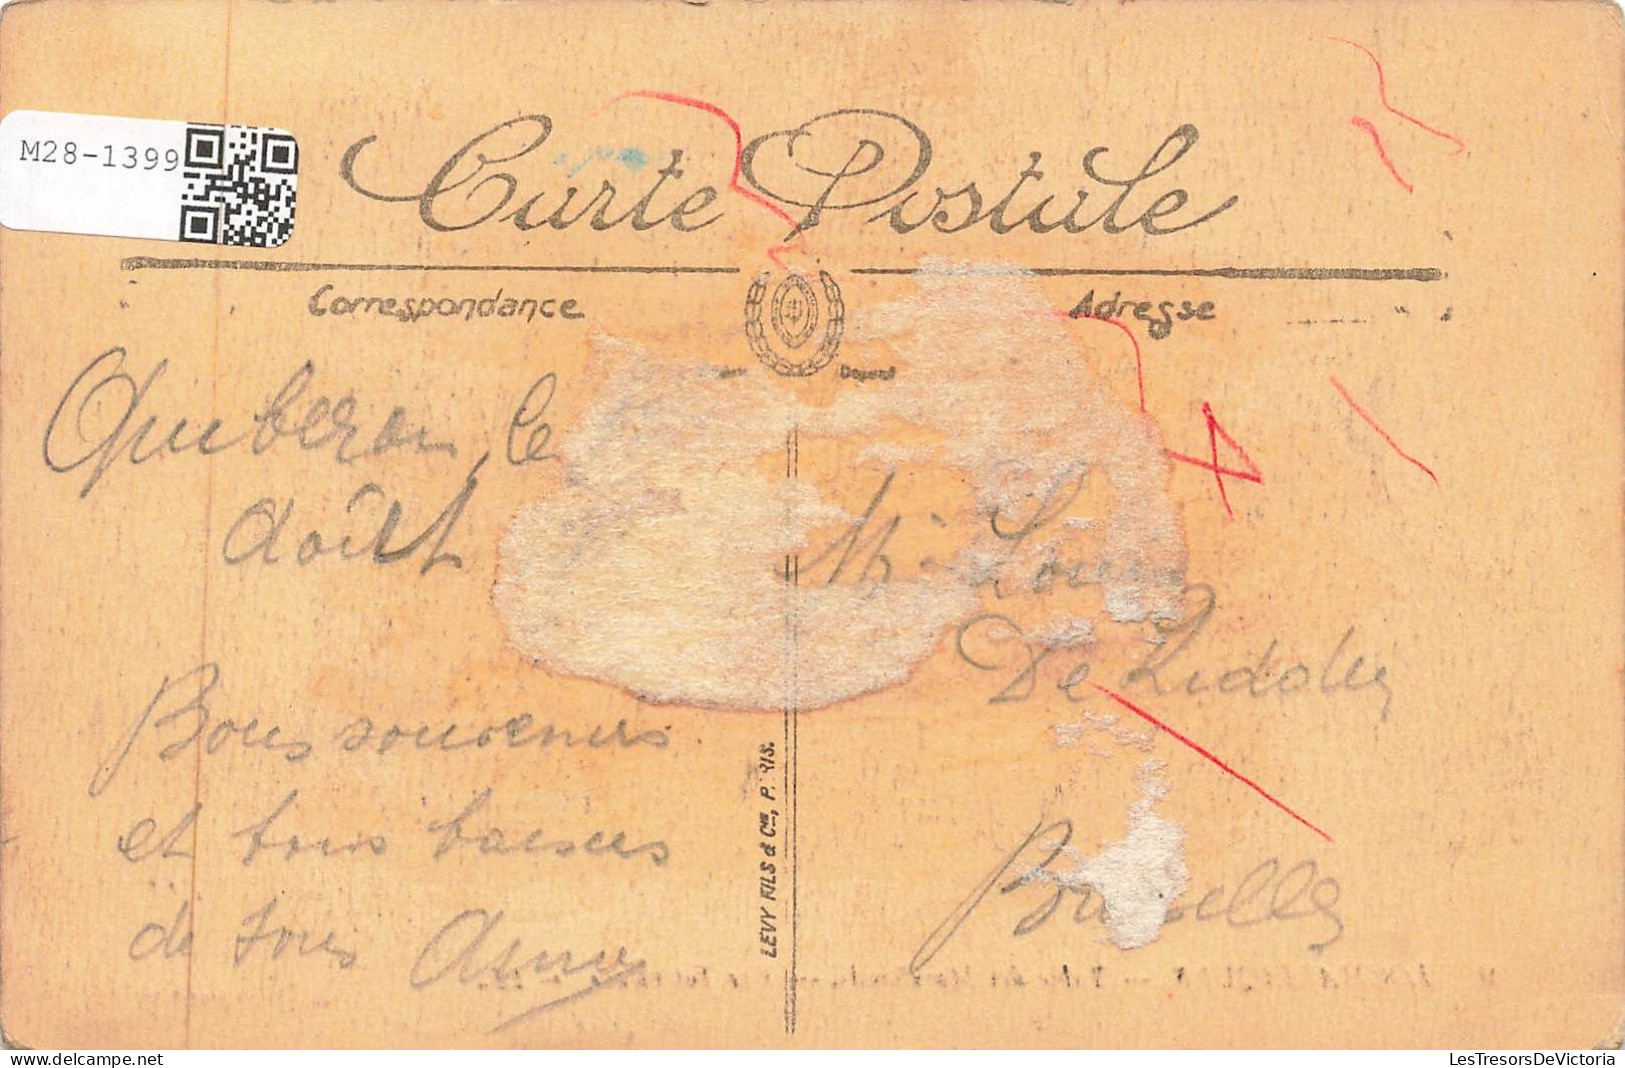 M28-1399
Carte Postale
Correspondance
Adresse
Déposé
Quiberon, le
Août
Mr Louis
De
Bons souvenirs
et bons baisers
de tous
Bruxelles
4
LEVY FILS & Cie, PARIS.
LesTresorsDeVictoria